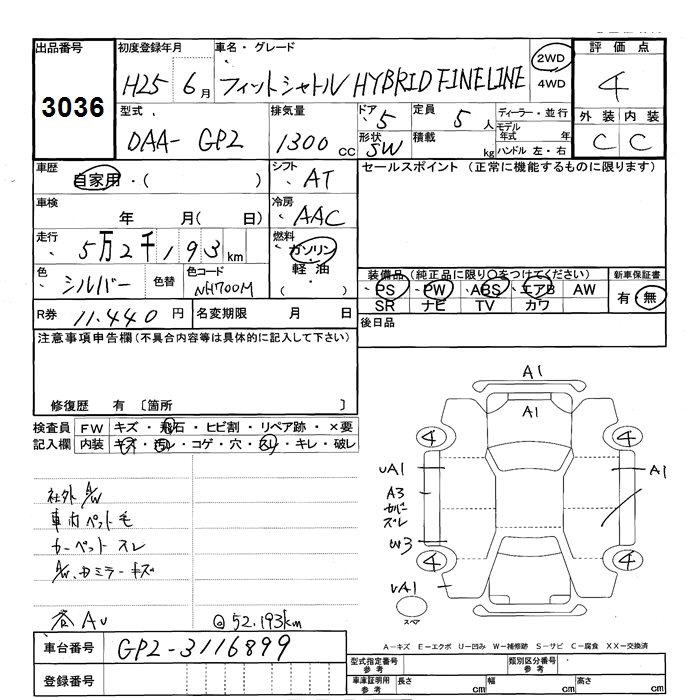 出品番号 初度登録年月 車名・グレード 評価点
3036 H25 6月 フィットシャトル HYBRID FINELINE 2WD 4WD 4
型式 排気量 ドア 定員 ディーラー・並行 外装 内装
DAA-GP2 1300cc 5 5人 モデル年式 年 C C
形状 SW 積載 kg ハンドル 左・右
車歴 シフト セールスポイント (正常に機能するものに限ります)
自家用・( ) AT
車検 冷房
年 月( 日) AAC
走行 燃料
5万2千193km ガソリン
色 シルバー 色替 色コード NH700M 軽油 ( ・ )
装備品(純正品に限り○をつけてください) 新車保証書
PS PW ABS エアB AW 有・無
SR ナビ TV カワ
R券 11.440円 名変期限 月 日 後日品
注意事項申告欄(不具合内容等は具体的に記入して下さい)
修復歴 有 〔箇所 〕
検査員 FW キズ・飛石・ヒビ割・リペア跡・×要
記入欄 内装 キズ・汚レ・コゲ・穴・スレ・キレ・破レ
A1
A1
4 4
UA1 A1
A3
カバー
ズレ
W3
4 4
UA1
スペア
社外A/W
車内ペット毛
カーペットスレ
A/W、ミラーキズ
@52.193km
車台番号 GP2-3116899
登録番号
A-キズ E-エクボ U-凹み W-補修跡 S-サビ C-腐食 XX-交換済
型式指定番号 参考 類別区分番号 参考
車庫証明用 参考 長さ cm 幅 cm 高さ cm